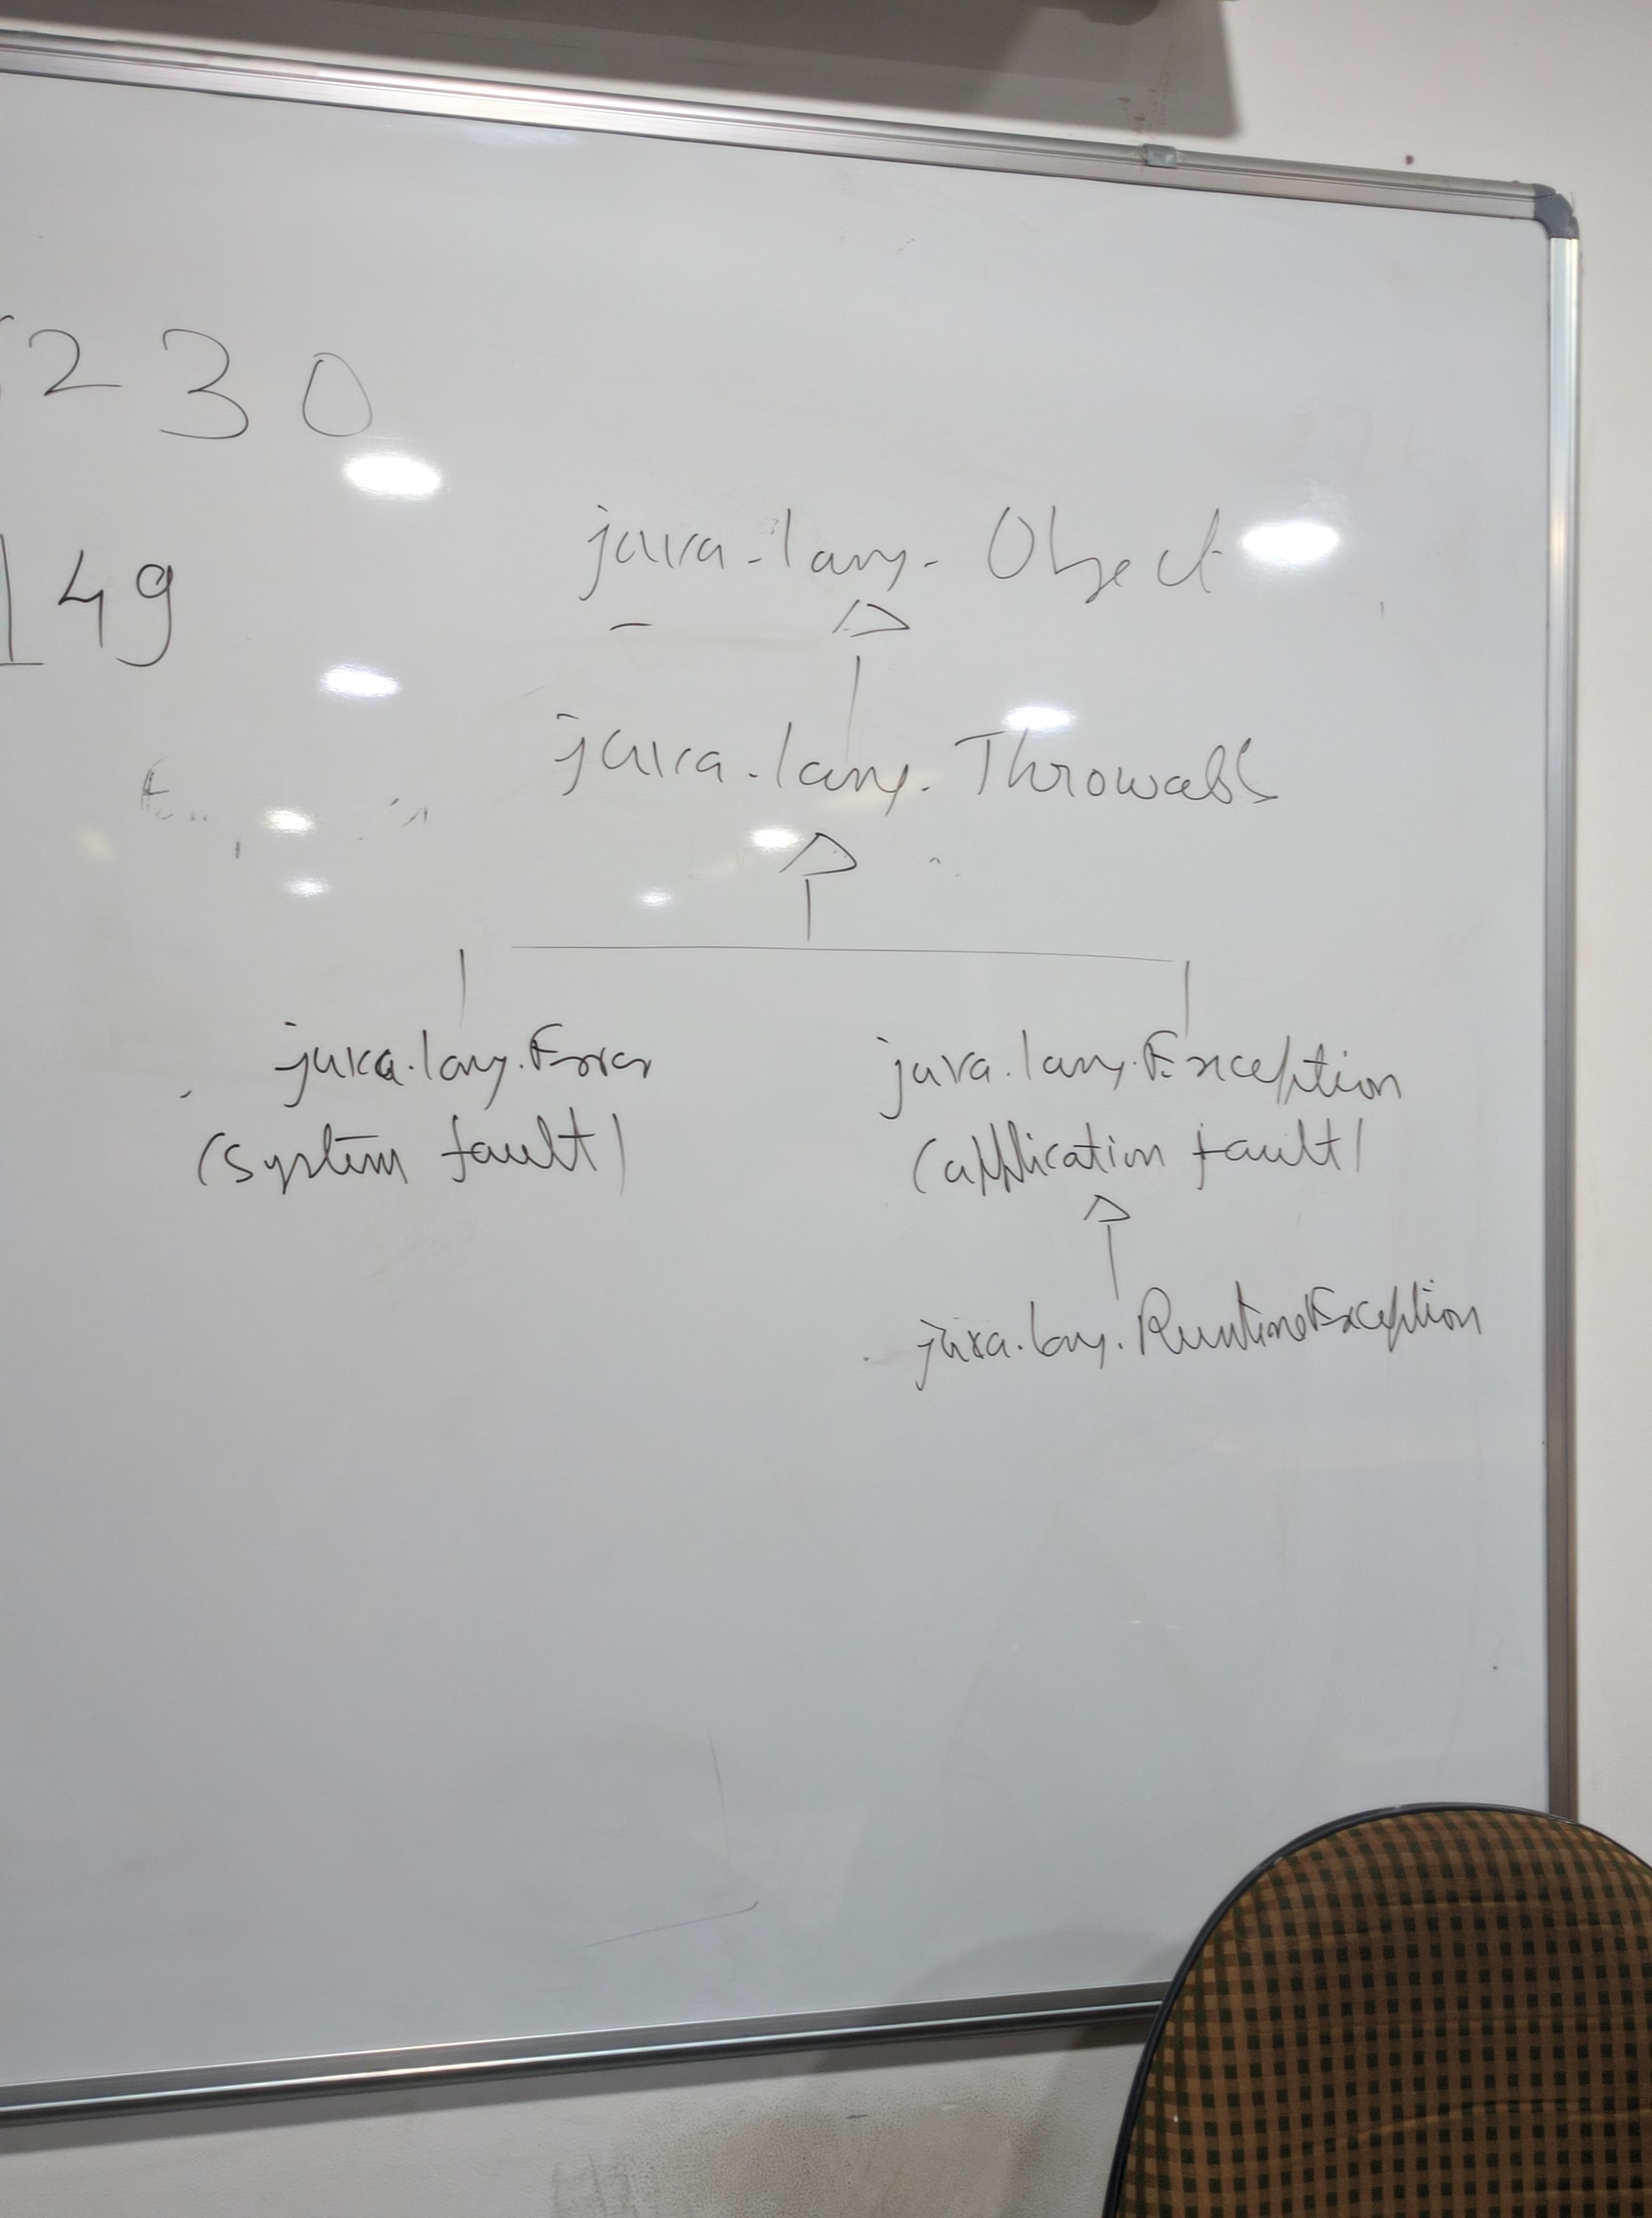 230
149
java.lang.Object
java.lang.Throwable
java.lang.Error
java.lang.Exception
(system fault)
(application fault)
java.lang.RuntimeException